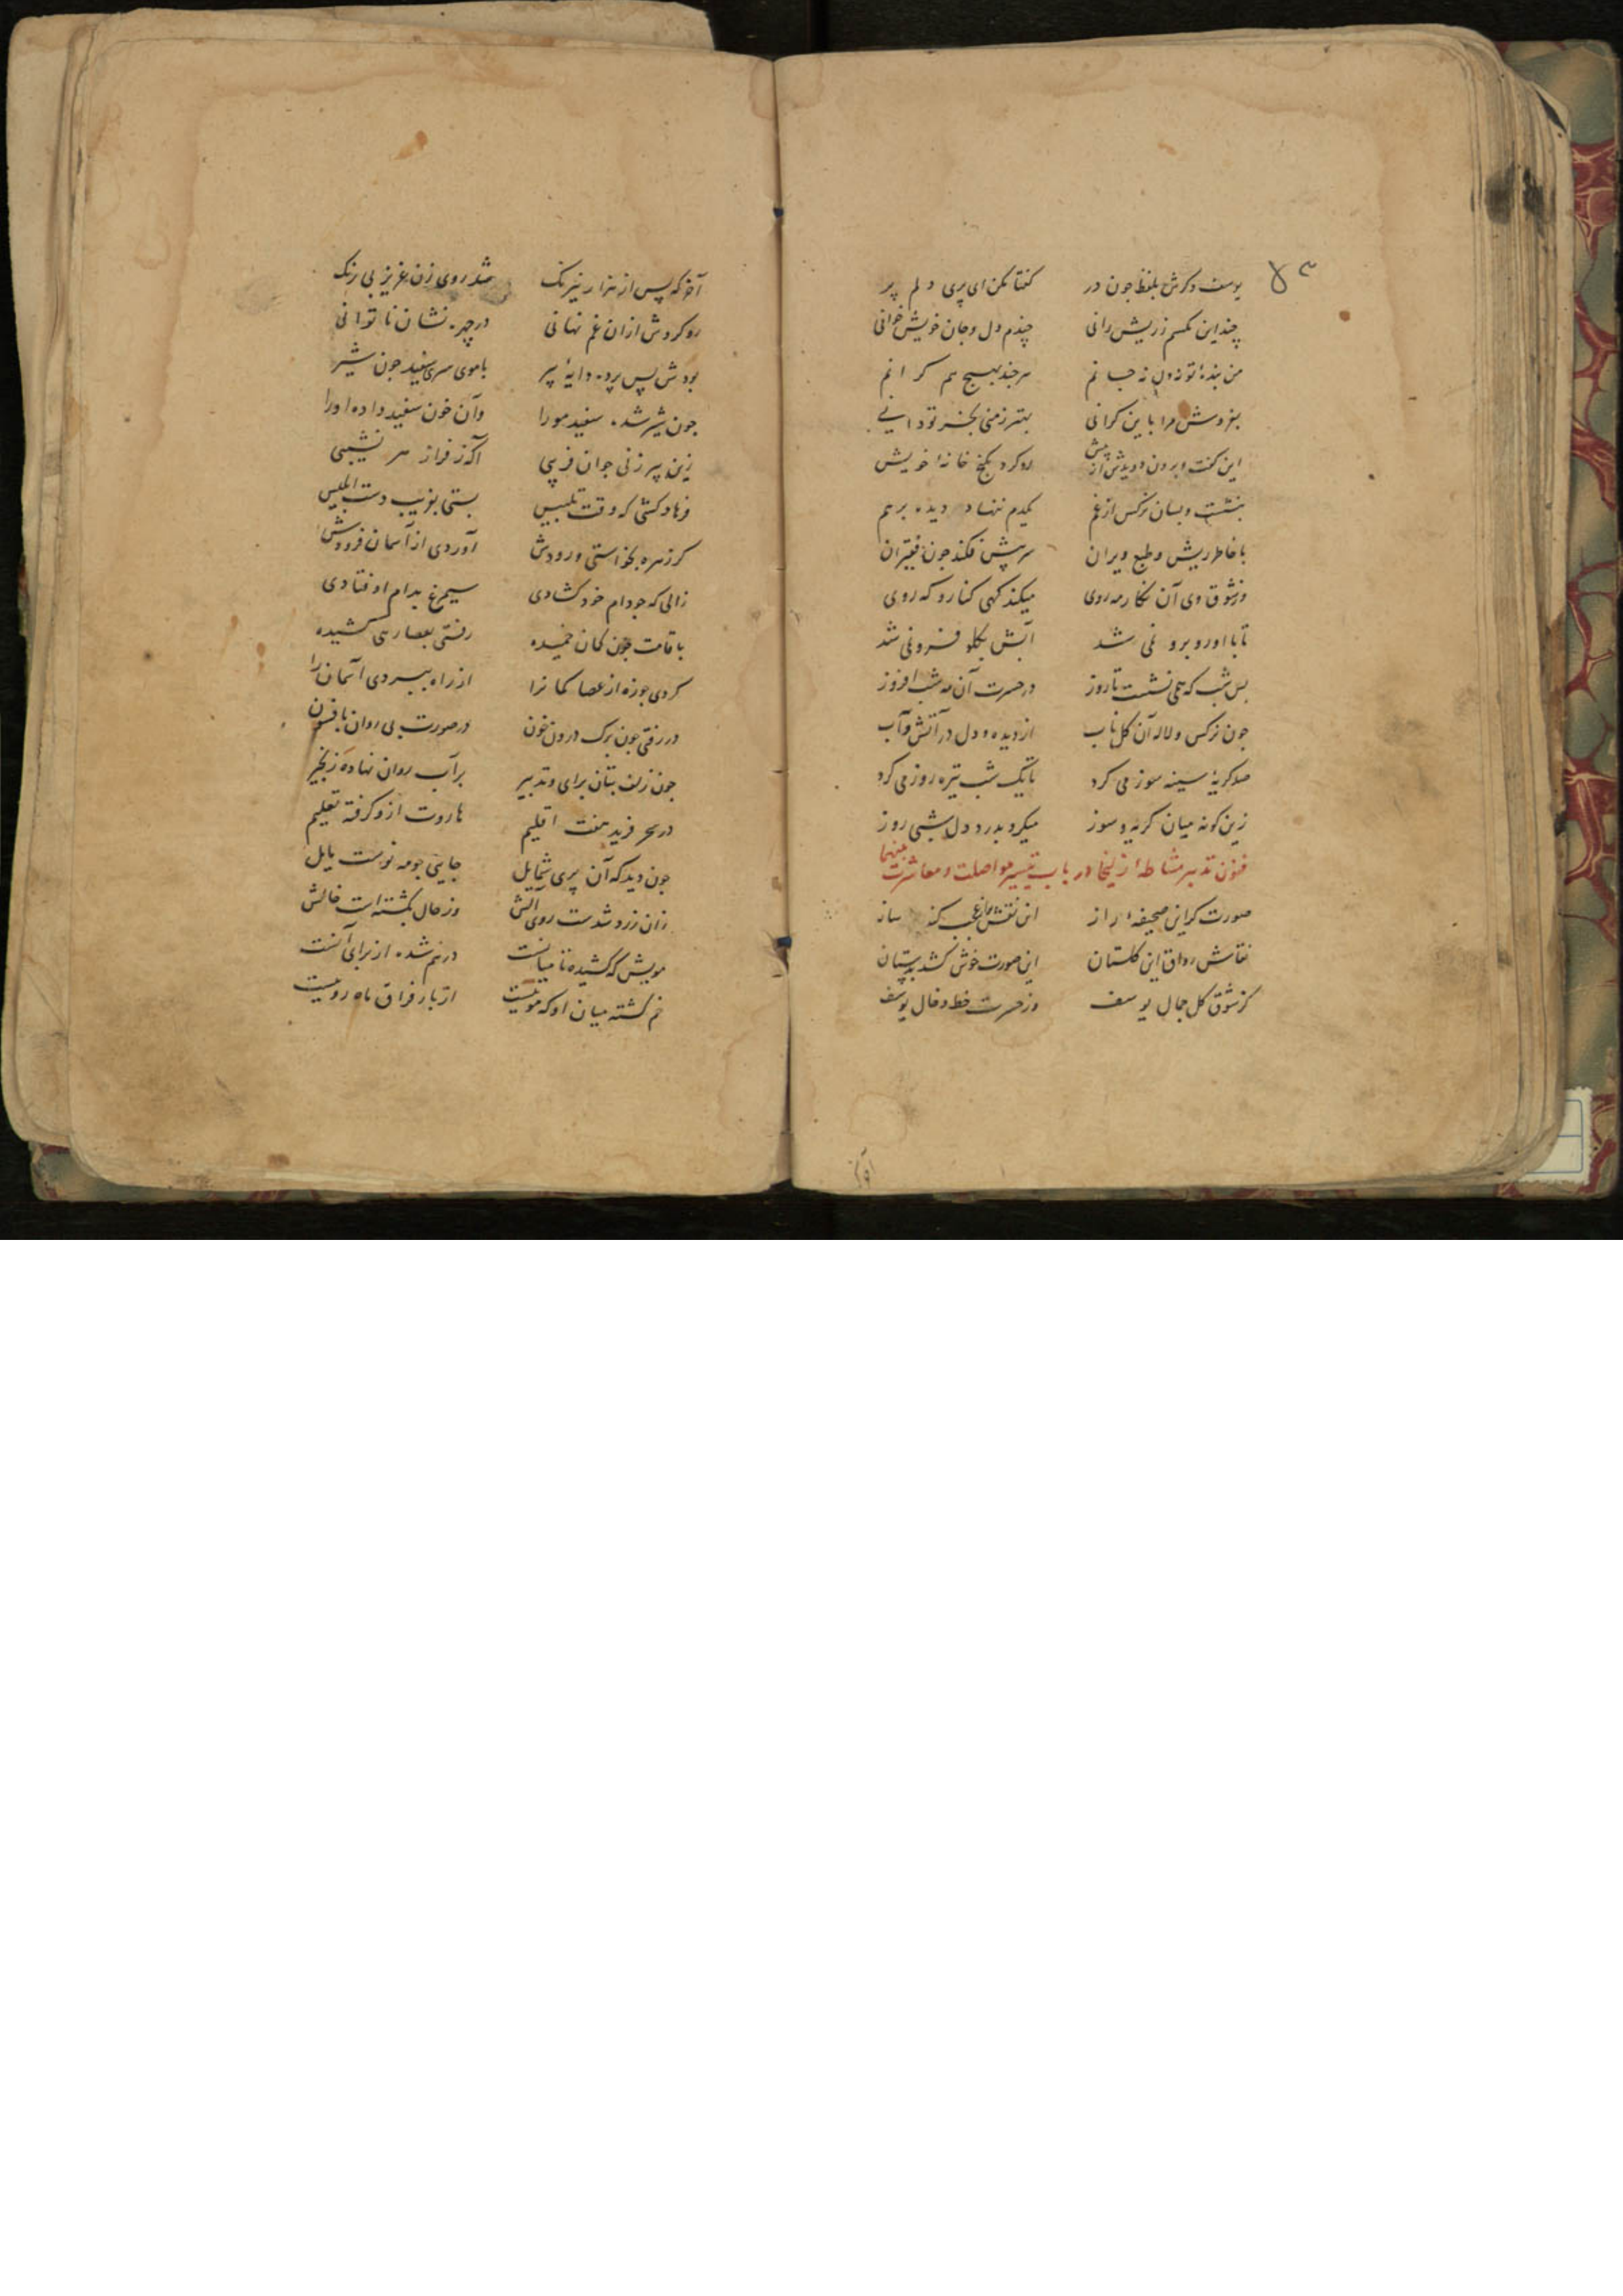 یوسف دکرش بلفظ چون در کفتا مکن ای پری دلم پر
چند این مکسم ز ریش رانی چندم دل و جان خویش خوانی
من بندهٔ تو نه دل نه جانم هر چند بهیچ هم کرانم
بفروش مرا باین کرانی بهتر ز منی بخر تو دانی
این کفت و برون دویدش از پیش رو کرد بکنج خانهٔ خویش
بنشست و بسان نرکس از غم یکدم ننهاد دیده برهم
با خاطر ریش و طبع ویران سر پیش فکند چون فقیران
وز شوق وی آن نکار مه روی میکند کهی کنار و که روی
تا با او رو برو نمی شد آبش بکلو فرو نمی شد
بس شب که همی نشست تا روز در حسرت آن مه شب افروز
جون نرکس و لاله آن کل ناب از دیده و دل در آتش و آب
صد کریهٔ سینه سوز می کرد تا یک شب تیره روز می کرد
زین کونه میان کریه و سوز میکرد بدرد دل شبی روز
فنون تدبیر مشاطهٔ زلیخا در باب تیسیر مواصلت و معاشرت بینهما
صورت کر این صحیفهٔ راز این نقش عجب کند ساز
نقاش رواق این کلستان این صورت خوش کشد بدستان
کز شوق کل جمال یوسف وز حسرت خط و خال یوسف
آخر که پس از هزار نیرنک شد روی زن عزیز بی رنک
رو کردش از ان غم نهانی در چهره نشان ناتوانی
بودش پس پرده دایهٔ پیر با موی سری سفید جون شیر
جون شیر شده سفید مو را وآن خون سفید داده او را
زین پیر زنی جوان فریبی آکه ز فراز هر نشیبی
فرهاد کشی که وقت تلبیس بستی بفریب دست ابلیس
کر زهره بخواستی ورودش آوردی از آسمان فرودش
زالی که جو دام خود کشادی سیمرغ بدام او فتادی
با قامت جون کمان خمیده رفتی بعصا رهی کشیده
کردی جو زه از عصا کمانرا از راه ببردی آسمان را
در رفتی جون برک درون خون در صورت بی روان بافسون
جون زلف بتان برای و تدبیر بر آب روان نهاده زنجیر
در سحر فرید هفت اقلیم هاروت ازو کرفته تعلیم
جون دید که آن پری شمایل جایی جو مه نوست مایل
زان زرد شدست روی آلش وز حال بکشته است خالش
مویش که کشیده تا میانست در هم شده از برای آنست
خم کشته میان او که موییست از بار فراق ماه روییست